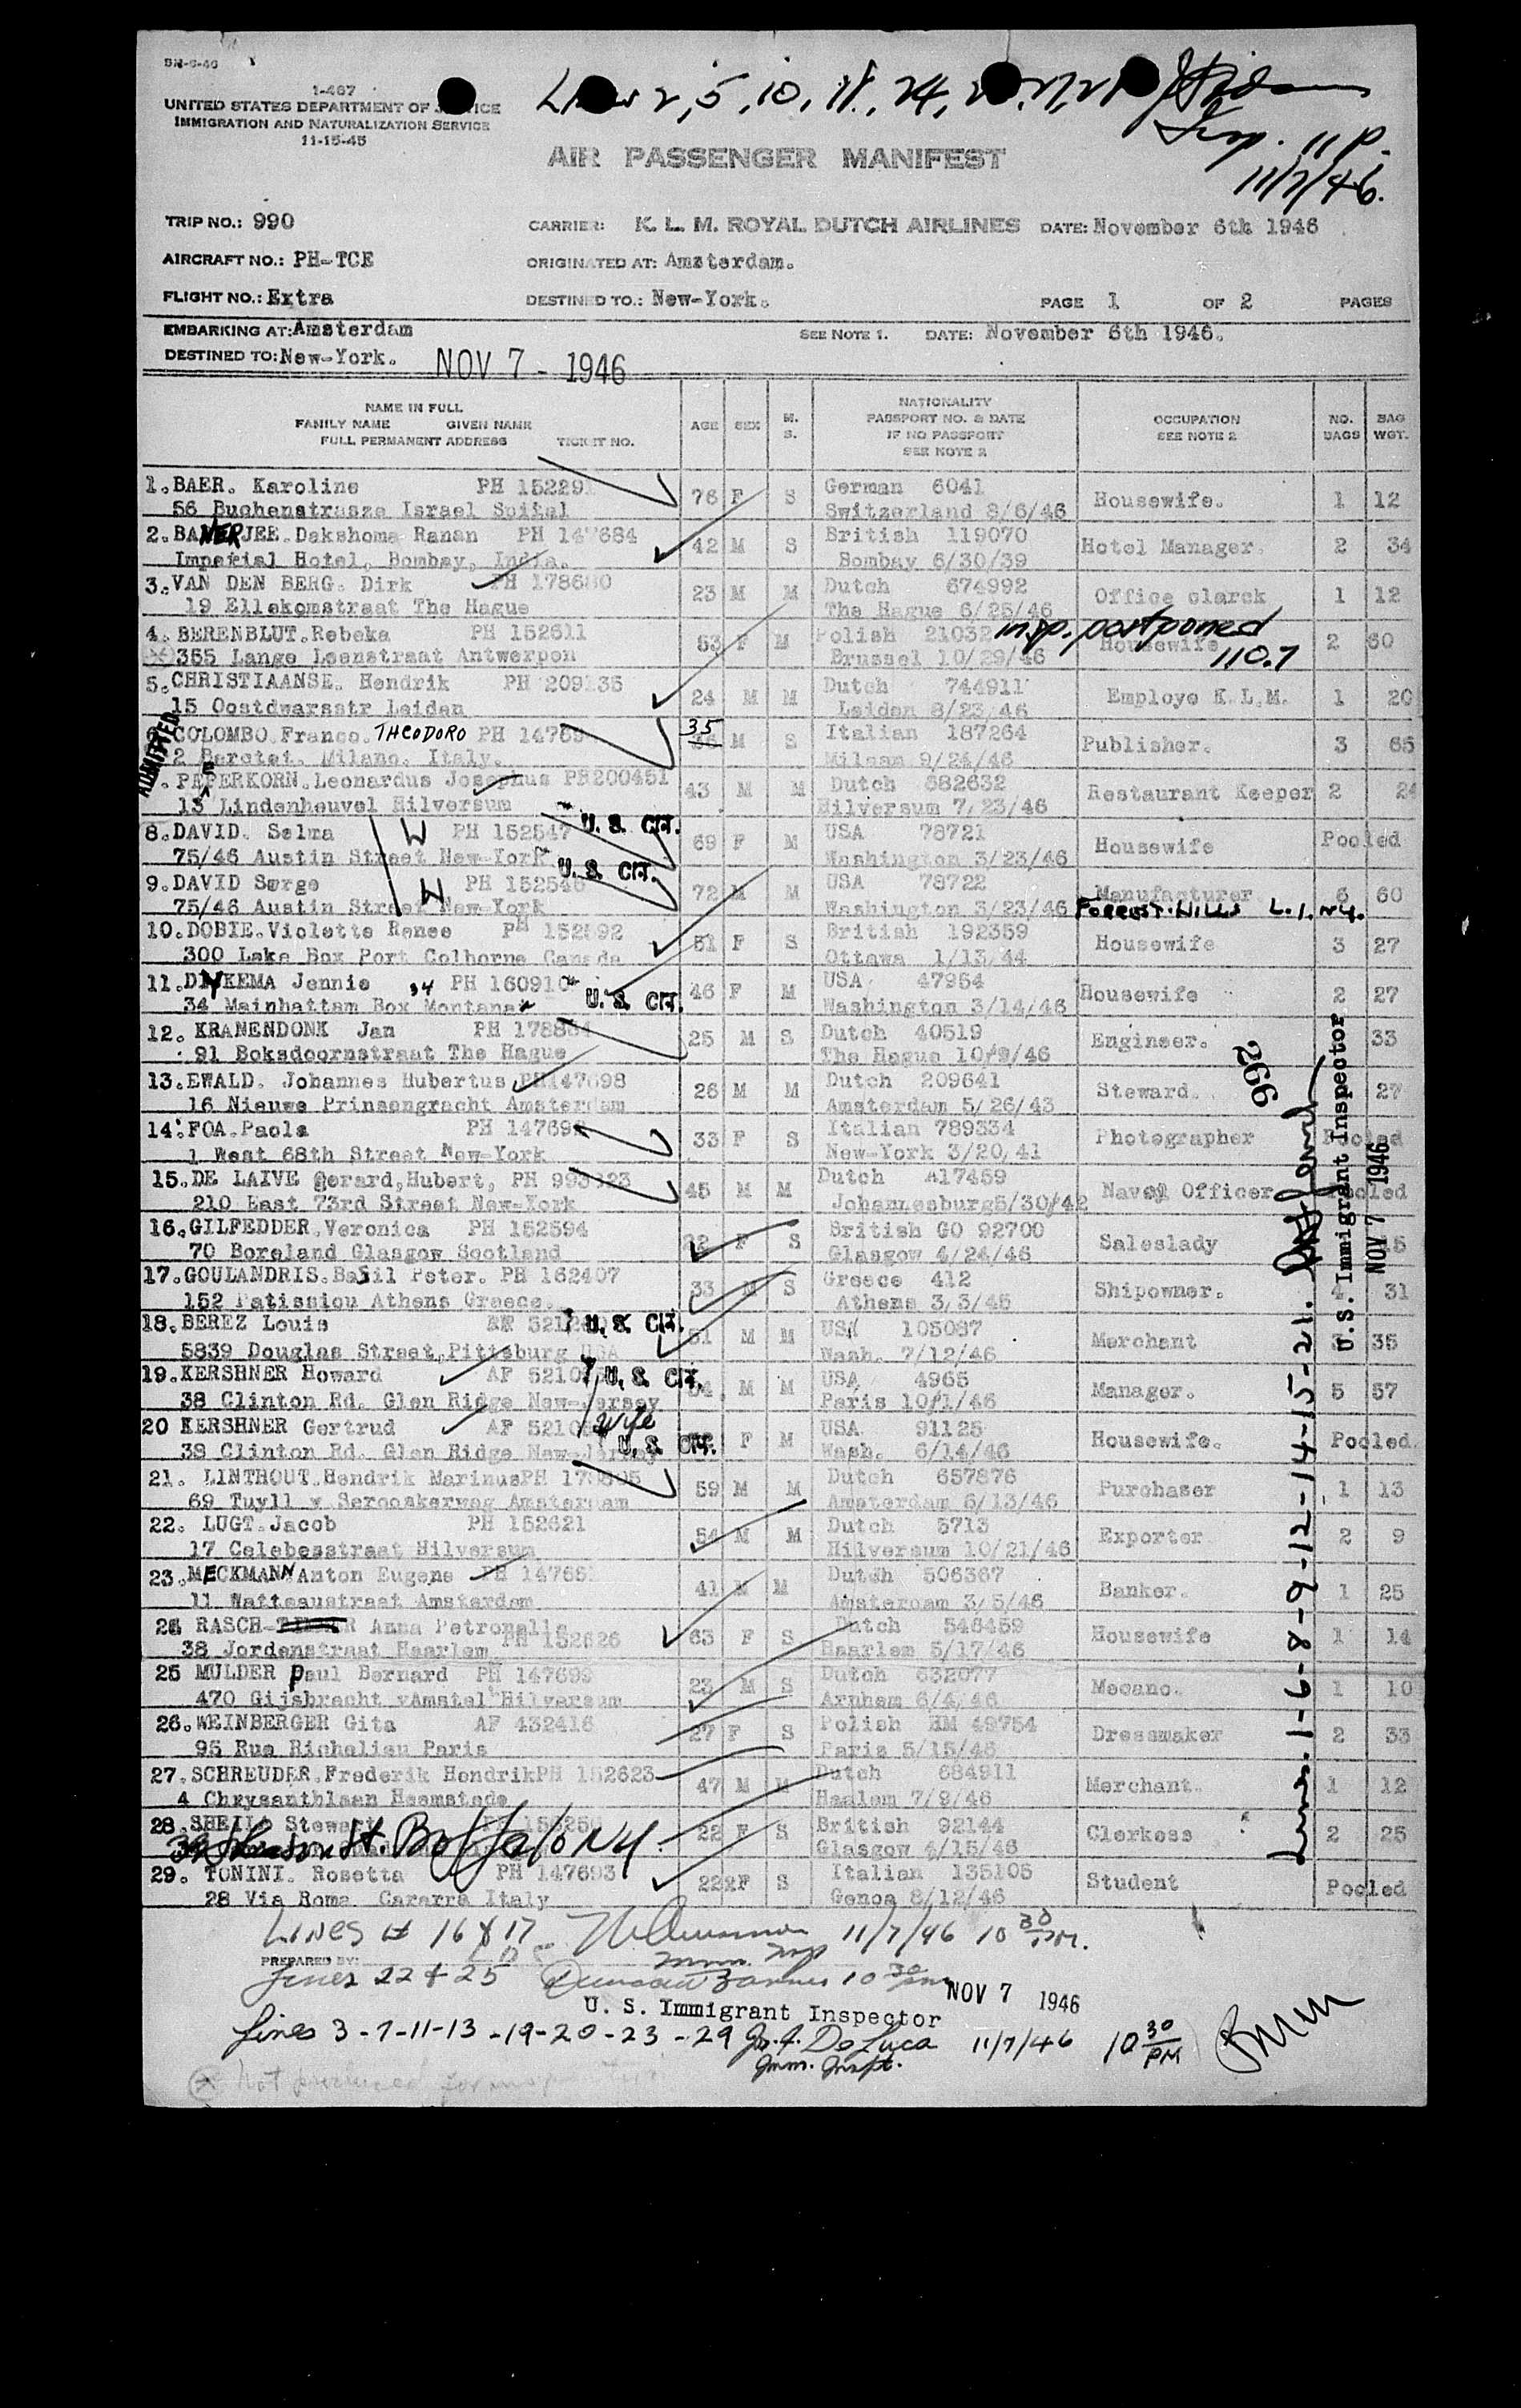 SN-6-46
1-467
UNITED STATES DEPARTMENT OF JUSTICE
IMMIGRATION AND NATURALIZATION SERVICE
11-15-45
Insp. 11 P.
11/7/46.
AIR PASSENGER MANIFEST
TRIP NO.: 990 CARRIER: K. L. M. ROYAL DUTCH AIRLINES DATE: November 6th 1946
AIRCRAFT NO.: PH-TCE ORIGINATED AT: Amsterdam.
FLIGHT NO.: Extra DESTINED TO.: New-York. PAGE 1 OF 2 PAGES
EMBARKING AT: Amsterdam SEE NOTE 1. DATE: November 6th 1946.
DESTINED TO: New-York. NOV 7 - 1946
NAME IN FULL
FAMILY NAME GIVEN NAME
FULL PERMANENT ADDRESS TICKET NO.
AGE SEX M. S.
NATIONALITY
PASSPORT NO. & DATE
IF NO PASSPORT
SEE NOTE 2
OCCUPATION
SEE NOTE 2
NO. BAGS BAG WGT.
1. BAER. Karoline PH 15229 76 F S German 6041 Housewife. 1 12
56 Buchenstrasze Israel Spital Switzerland 8/6/46
2. BANERJEE. Dakshoma Ranan PH 147684 42 M S British 119070 Hotel Manager. 2 34
Imperial Hotel, Bombay, India. Bombay 6/30/39
3. VAN DEN BERG. Dirk PH 178680 23 M M Dutch 674992 Office clarck 1 12
19 Ellekomstraat The Hague The Hague 6/25/46
4. BERENBLUT. Rebeka PH 152611 53 F M Polish 21032 Housewife 2 60
insp. postponed
365 Lange Leenstraat Antwerpen Brussel 10/29/46 110.7
5. CHRISTIAANSE. Hendrik PH 209135 24 M M Dutch 744911 Employe K.L.M. 1 20
15 Oostdwarsstr Leiden Leiden 8/23/46
ADMITTED
6. COLOMBO. Franco. THEODORO PH 14768 35 M S Italian 187264 Publisher. 3 65
2 Beretet. Milano. Italy. Milaan 9/24/46
7. PAPERKORN. Leonardus Josephus PH200451 43 M M Dutch 682632 Restaurant Keeper 2 24
13 Lindenheuvel Hilversum Hilversum 7/23/46
8. DAVID. Selma W PH 152547 U. S. CIT. 69 F M USA 78721 Housewife Pooled
75/46 Austin Street New-York Washington 3/23/46
9. DAVID Serge W PH 152546 U. S. CIT. 72 M M USA 78722 Manufacturer 6 60
75/46 Austin Street New-York Washington 3/23/46 FORREST-HILLS L.I. N.Y.
10. DOBIE. Violette Renee PH 152592 51 F S British 192359 Housewife 3 27
300 Lake Box Port Colborne Canada Ottawa 1/13/44
11. DYKEMA Jennie 34 PH 160910 U. S. CIT. 46 F M USA 47954 Housewife 2 27
34 Mainhattam Box Montana Washington 3/14/46
12. KRANENDONK Jan PH 17883 25 M S Dutch 40519 Engineer. 33
91 Boksdoornstraat The Hague The Hague 10/9/46
13. EWALD. Johannes Hubertus PH147698 26 M M Dutch 209641 Steward. 27
16 Nieuwe Prinsengracht Amsterdam Amsterdam 5/26/43
14. FOA. Paola PH 14769 33 F S Italian 789334 Photographer Pooled
1 West 68th Street New-York New-York 3/20/41
15. DE LAIVE Gerard, Hubert, PH 993323 45 M M Dutch A17459 Naval Officer Pooled
210 East 73rd Street New-York Johannesburg5/30/42
16. GILFEDDER. Veronica PH 152594 F S British GO 92700 Saleslady 15
70 Boreland Glasgow Scotland Glasgow 4/24/46
17. GOULANDRIS. Basil Peter. PH 162407 33 M S Greece 412 Shipowner. 4 31
152 Patissiou Athens Greece. Athens 3/3/45
18. BEREZ Louis U. S. CIT. 51 M M USA 105087 Merchant 35
5839 Douglas Street, Pittsburg USA Wash. 7/12/46
19. KERSHNER Howard AF 5210 U. S. CIT. 54 M M USA 4965 Manager. 5 57
38 Clinton Rd. Glen Ridge New-Jersey Paris 10/1/46
20 KERSHNER Gertrud AF 5210 Wife U. S. CIT. F M USA 91125 Housewife. Pooled.
38 Clinton Rd. Glen Ridge New-Jersey Wash. 6/14/46
21. LINTHOUT. Hendrik Marinus PH 59 M M Dutch 657876 Purchaser 1 13
69 Tuyll v Serooskerweg Amsterdam Amsterdam 6/13/46
22. LUGT. Jacob PH 152621 54 M M Dutch 5713 Exporter 2 9
17 Celebesstraat Hilversum Hilversum 10/21/46
23. MECKMANN Anton Eugene PH 14766 41 M M Dutch 506367 Banker. 1 25
11 Watteaustraat Amsterdam Amsterdam 3/5/46
24 RASCH- Anna Petronella PH 152626 63 F S Dutch 546459 Housewife 1 14
38 Jordenstraat Haarlem Haarlem 5/17/46
25 MULDER Paul Bernard PH 147699 23 M S Dutch 632077 Mecano. 1 10
470 Gijsbracht vAmstel Hilversum Arnham 6/4/46
26. WEINBERGER Gita AF 432416 27 F S Polish HM 49754 Dressmaker 2 33
95 Rue Richelieu Paris Paris 5/15/46
27. SCHREUDER. Frederik Hendrik PH 152623 47 M M Dutch 684911 Merchant. 1 12
4 Chrysanthlaan Heemstede Haalem 7/9/46
28. SHEILA Stewart 22 F S British 92144 Clerkess 2 25
St. Buffalo NY Glasgow 4/15/46
29. TONINI. Rosetta PH 147693 22 F S Italian 135105 Student Pooled
28 Via Roma Cararra Italy Genoa 8/12/46
Lines 1-6-8-9-12-14-15-21.
U.S. Immigrant Inspector
NOV 7 1946
266
LINES # 16 & 17 11/7/46 10 30 P.M.
PREPARED BY: Imm. Insp
Lines 22 & 25 10 30 pm
NOV 7 1946
U. S. Immigrant Inspector
Lines 3-7-11-13-19-20-23-29 De Luca 11/7/46 10 30 PM
Imm. Inspt.
Not produced for inspection